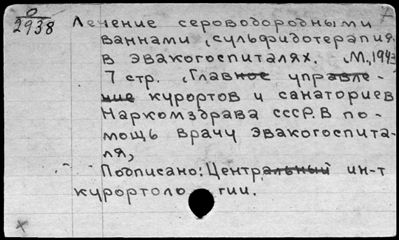 0
2938
Лечение сероводородными
ваннами, сульфидотерапия
в эвакогоспиталях. М., 1943
7 стр. (Главное управле-
ние курортов и санаториев
Наркомздрава СССР. В по-
мощь врачу эвакогоспита-
ля,
Подписано: Центральный ин-т
курортологии.